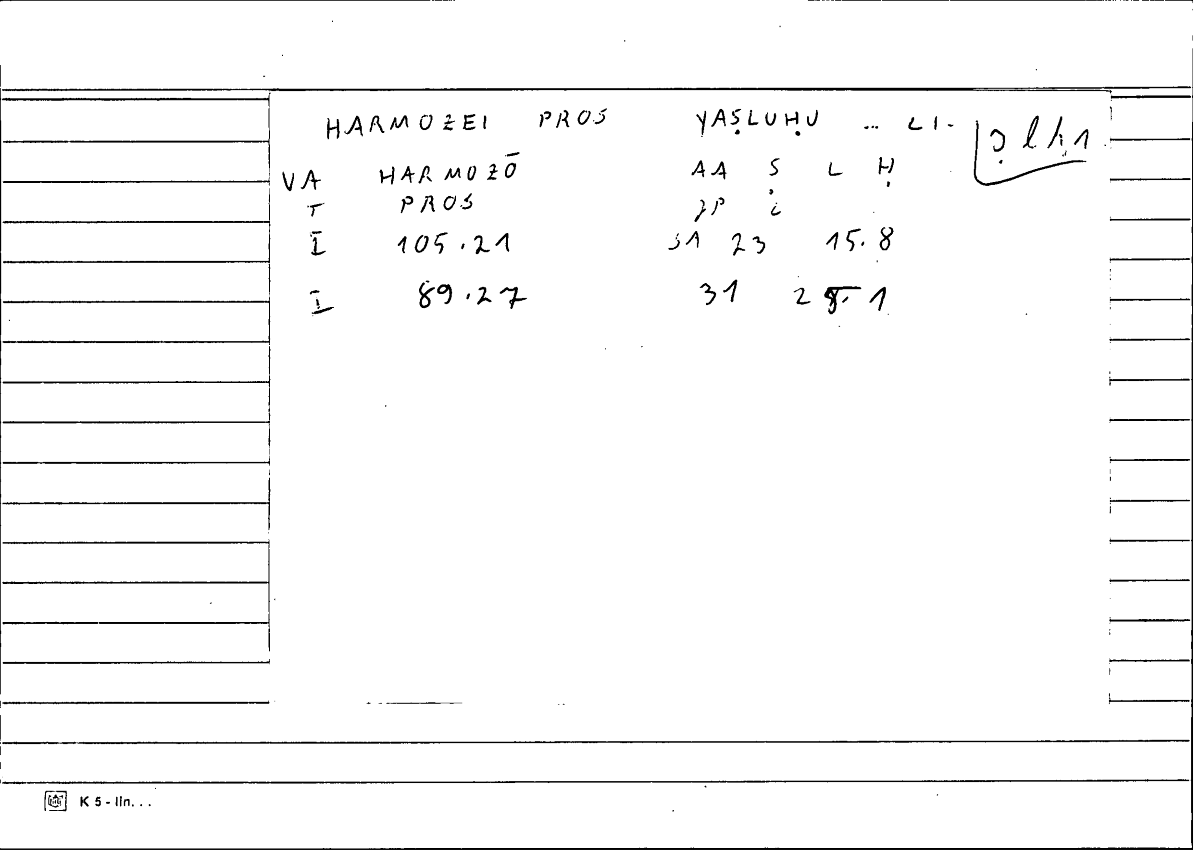 HARMOZEI PROS YAṢLUḤU ... LI- ṣlḥ1
VA HARMOZŌ AA Ṣ L Ḥ
T PROS JP i
I 105.21 31 23 15.8
I 89.27 31 28.1
K 5 - lin. . .